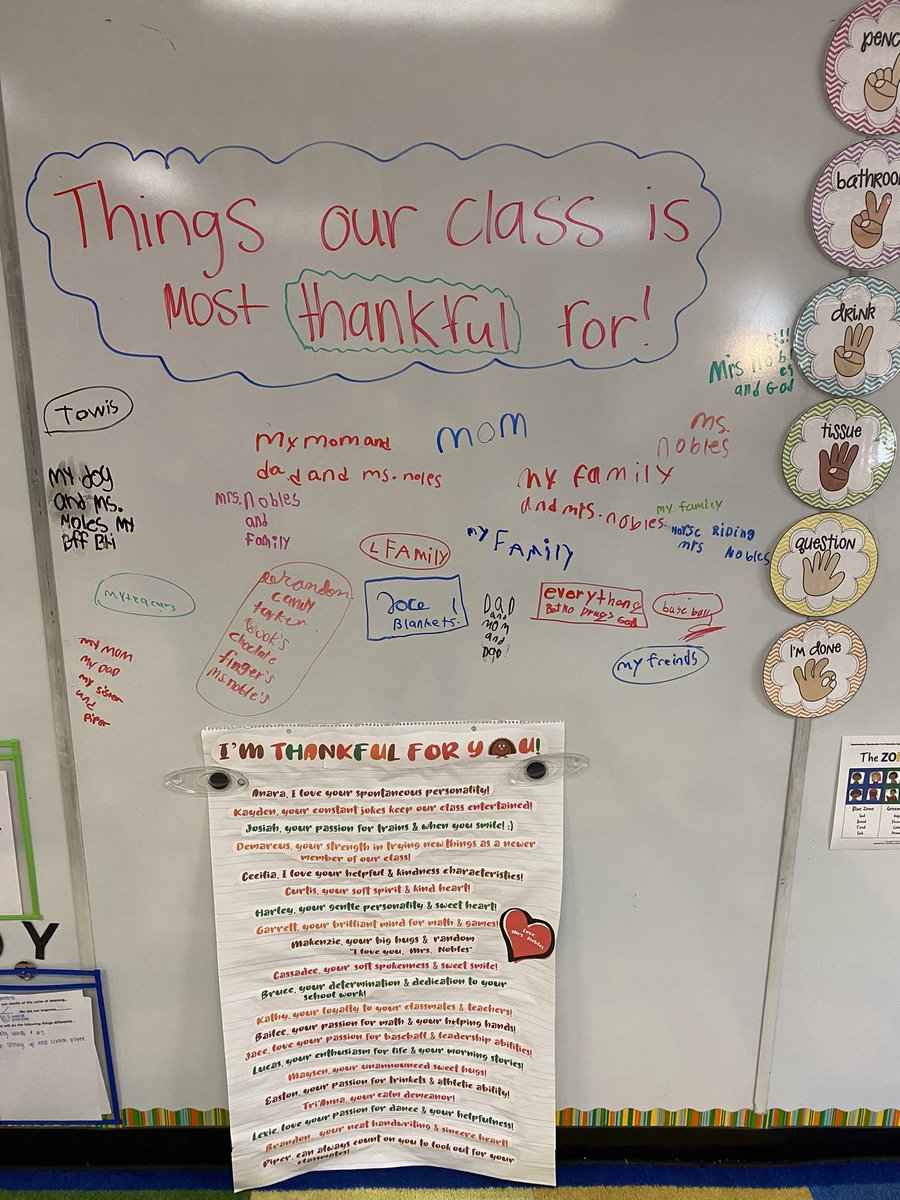 Things our class is
Most thankful for!
Mrs Nobl
es
and God
Towis
my dog
and ms.
Moles My
Bff
my mom and
dad and ms. noles
mom
ms.
nobles
my family
and mrs. nobles.
mrs. Nobles
and
Family
L FAMILY
my FAMILY
my family
Horse RIDING
mrs Nobles
random
candy
book's
choclate
finger's
ms.noble's
Blankets.
DAD
and
MOM
and
DOD!
everythang
But no Drugs God
my freinds
my mom
my DAD
my sister
and
Piper
I'M THANKFUL FOR YOU!
Anara, I love your spontaneous personality!
Kayden, your constant jokes keep our class entertained!
Josiah, your passion for trains & when you smile! :)
Demarcus, your strength in trying new things as a newer
member of our class!
Cecilia, I love your helpful & kindness characteristics!
Curtis, your soft spirit & kind heart!
Harley, your gentle personality & sweet heart!
Garrett, your brilliant mind for math & games!
Makenzie, your big hugs & random
"I love you, Mrs. Nobles"
Cassadee, your soft spokenness & sweet smile!
Bruce, your determination & dedication to your
school work!
Kathy, your loyalty to your classmates & teachers!
Bailee, your passion for math & your helping hands!
Jace, love your passion for baseball & leadership abilities!
Lucas, your enthusiasm for life & your morning stories!
Maysen, your unannounced sweet hugs!
Easton, your passion for trinkets & athletic ability!
Tri'Anna, your calm demeanor!
Lexie, love your passion for dance & your helpfulness!
Brandon, your neat handwriting & sincere heart!
Piper, can always count on you to look out for your
classmates!
Love,
Mrs. Nobles
penc
bathroom
drink
tissue
question
I'm done
The ZO
Blue Zone
Sad
Bored
Tired
Sick
Green
DY